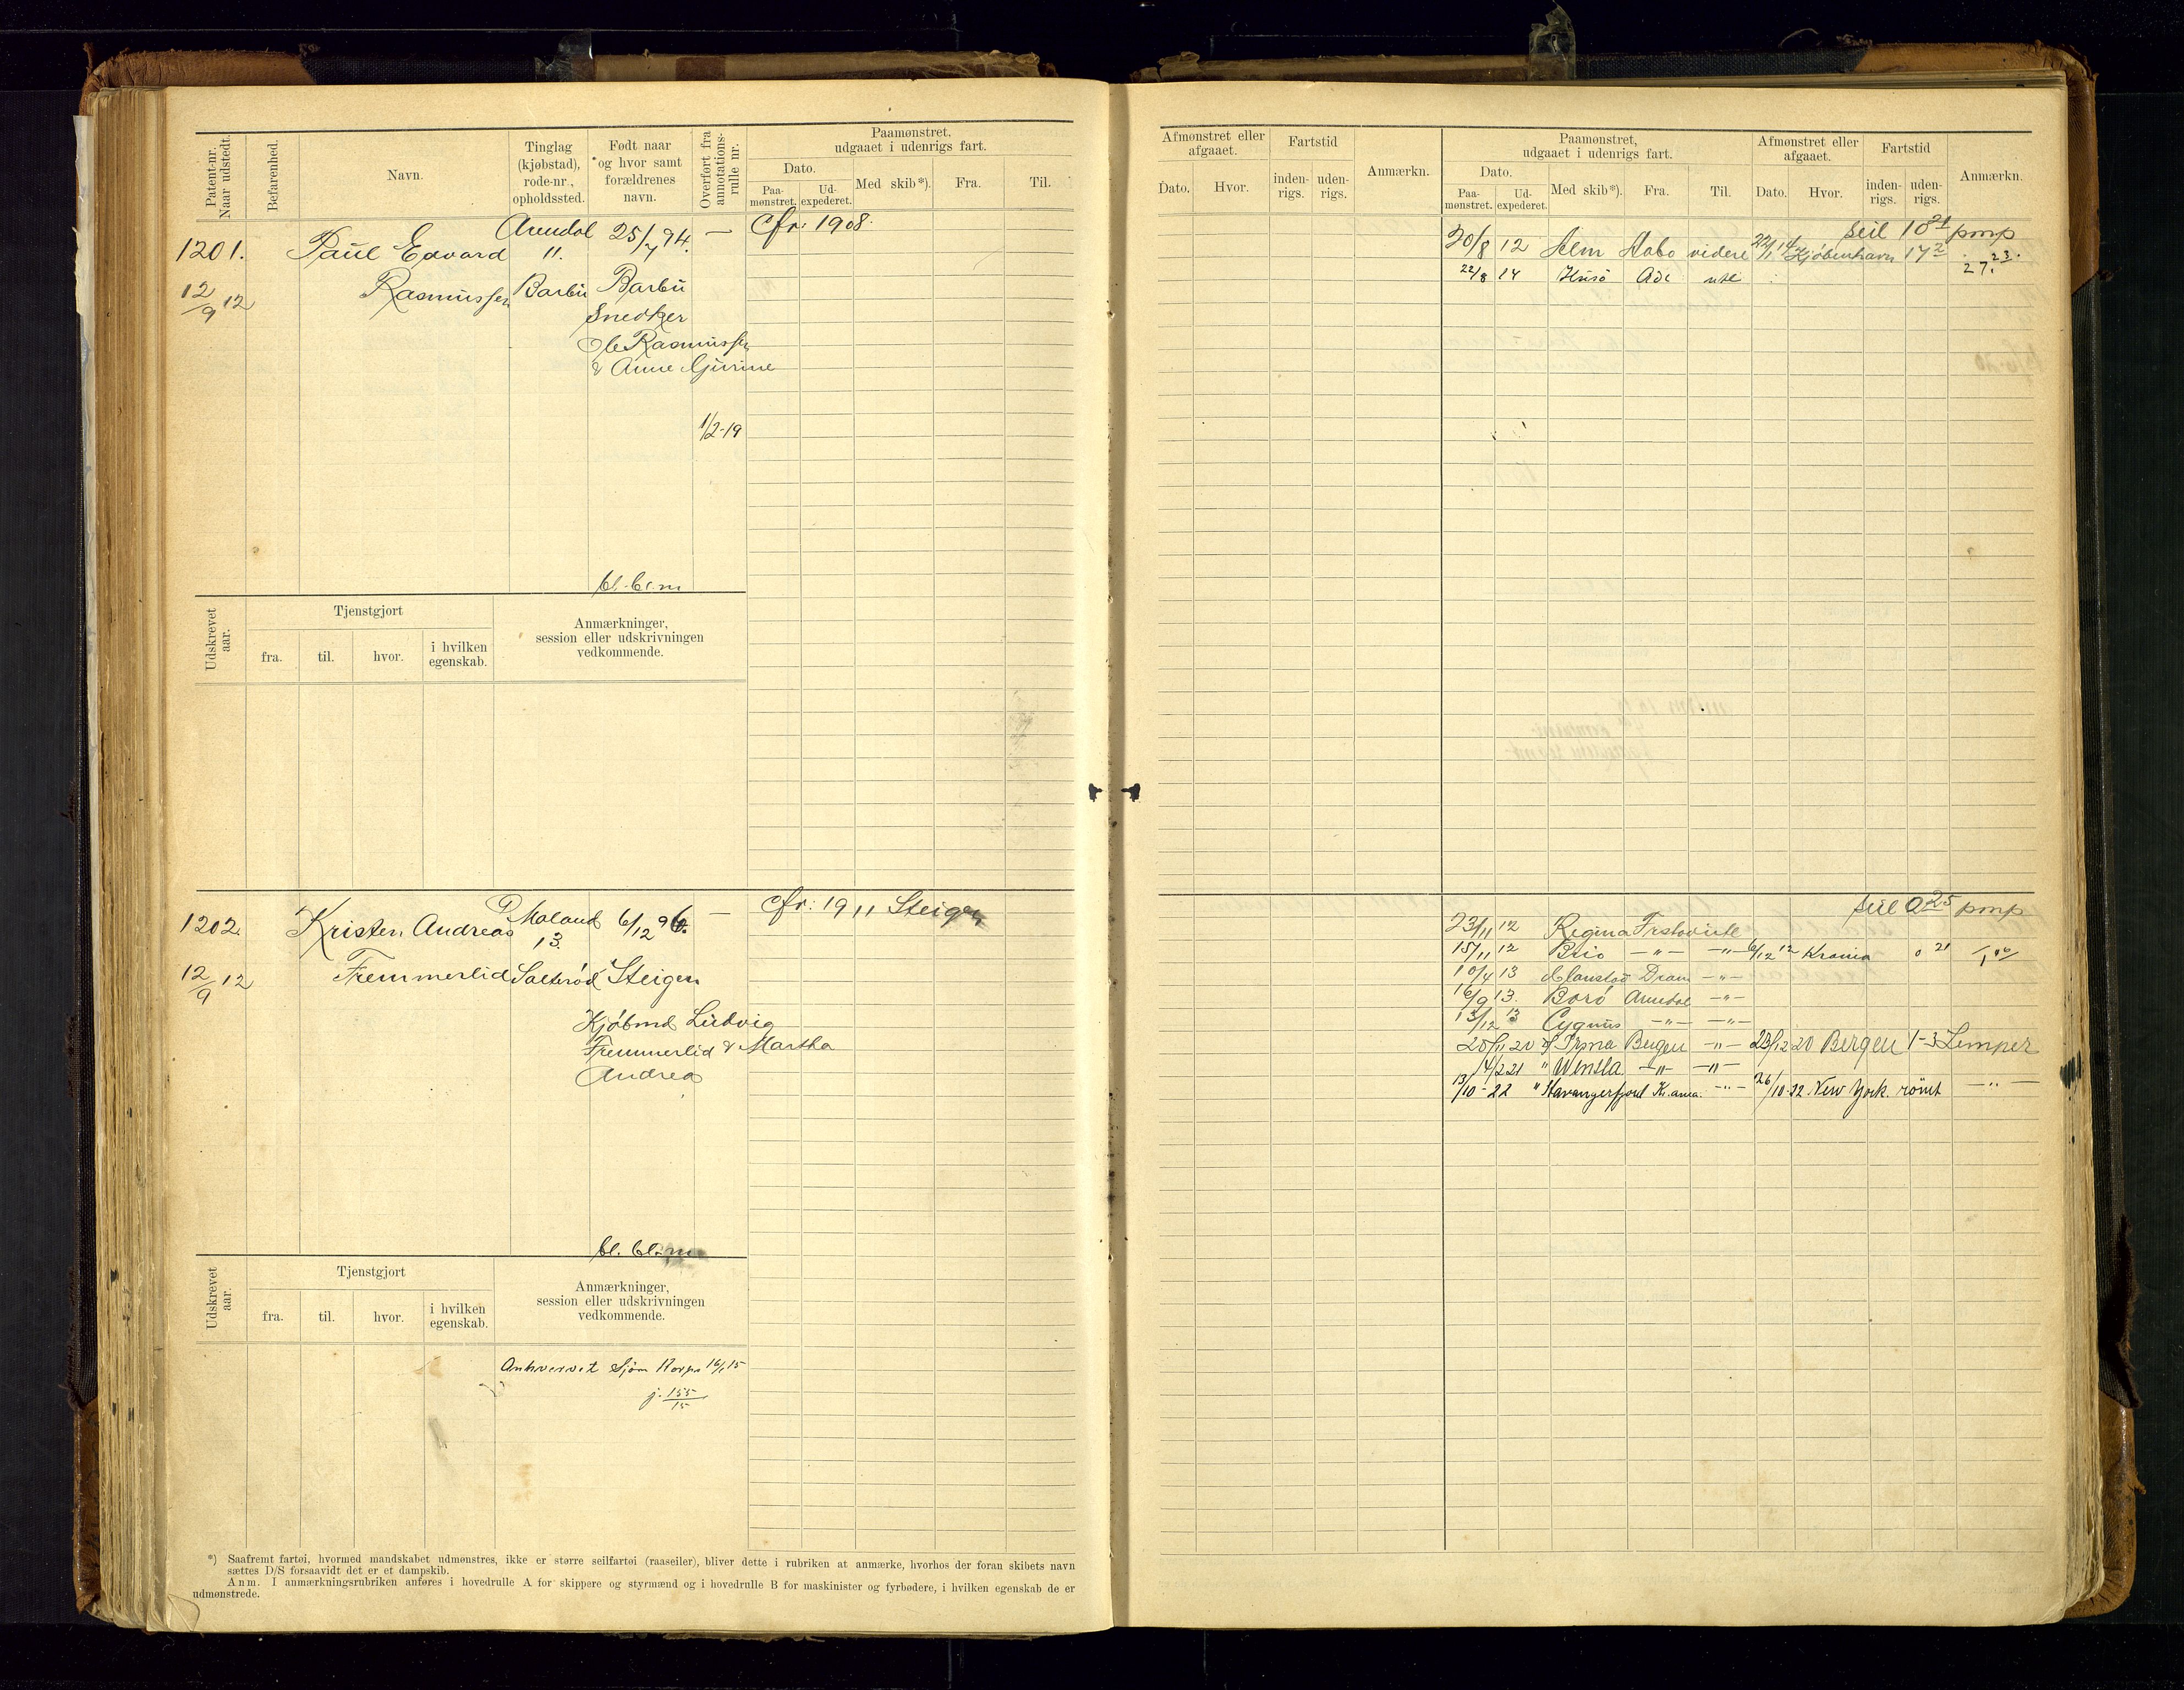 Patent-nr.
Naar udstedt.
Befarenhed.
Navn.
Tinglag
(kjøbstad),
rode-nr.,
opholdssted.
Født naar
og hvor samt
forældrenes
navn.
Overført fra
annotations-
rulle nr.
Paamønstret,
udgaaet i udenrigs fart.
Dato.
Paa-
mønstret.
Ud-
expederet.
Med skib*).
Fra.
Til.
1201.
12/9 12
Paul Edvard
Rasmussen
Arendal
11.
Barbu
25/7 94.
Barbu
Snedker
Ole Rasmussen
& Anne Gurine
—
1/2-19
cfr: 1908.
bl. bl. m
Udskrevet
aar.
Tjenstgjort
fra.
til.
hvor.
i hvilken
egenskab.
Anmærkninger,
session eller udskrivningen
vedkommende.
1202.
12/9 12
Kristen Andreas
Fremmerlid
Ø Moland
13.
Salterød
6/12 96.
Steigen
Kjøbmd Ludvig
Fremmerlid & Martha
Andrea
—
cfr: 1911 Steigen
bl. bl. m
Udskrevet
aar.
Tjenstgjort
fra.
til.
hvor.
i hvilken
egenskab.
Anmærkninger,
session eller udskrivningen
vedkommende.
Anhvervet Sjøm Korps 16/1 15
j. 155/15
*) Saafremt fartøi, hvormed mandskabet udmønstres, ikke er større seilfartøi (raaseiler), bliver dette i rubriken at anmærke, hvorhos der foran skibets navn
sættes D/S forsaavidt det er et dampskib.
Anm. I anmærkningsrubriken anføres i hovedrulle A for skippere og styrmænd og i hovedrulle B for maskinister og fyrbødere, i hvilken egenskab de er
udmønstrede.
Afmønstret eller
afgaaet.
Dato.
Hvor.
Fartstid
inden-
rigs.
uden-
rigs.
Anmærkn.
Paamønstret,
udgaaet i udenrigs fart.
Dato.
Paa-
mønstret.
Ud-
expederet.
Med skib*).
Fra.
Til.
Afmønstret eller
afgaaet.
Dato.
Hvor.
Fartstid
inden-
rigs.
uden-
rigs.
Anmærkn.
seil 10 21 pmp
30/8 12 Alm Aabo videre 22/1 14 Kjøbenhavn 17 2
27. 23.
22/8 14 Husö Adl utl
seil 0 25 pmp
23/11 12 Regina Frstav utl
15/11 12 Brio —"— —"— 6/12 12 Krania 0 21
10/4 13 Dram —"—
16/9 13. Borö Arendal —"—
13/12 13 Cygnus —"— —"—
20/11 20 Irma Bergen —"— 23/12 20 Bergen 1-3 Lemper
14/2 21 " Wensla —"— —"—
13/10-22 " Stavangerfjord Kr.ania. —"— 26/10-22 New York. römt —"—